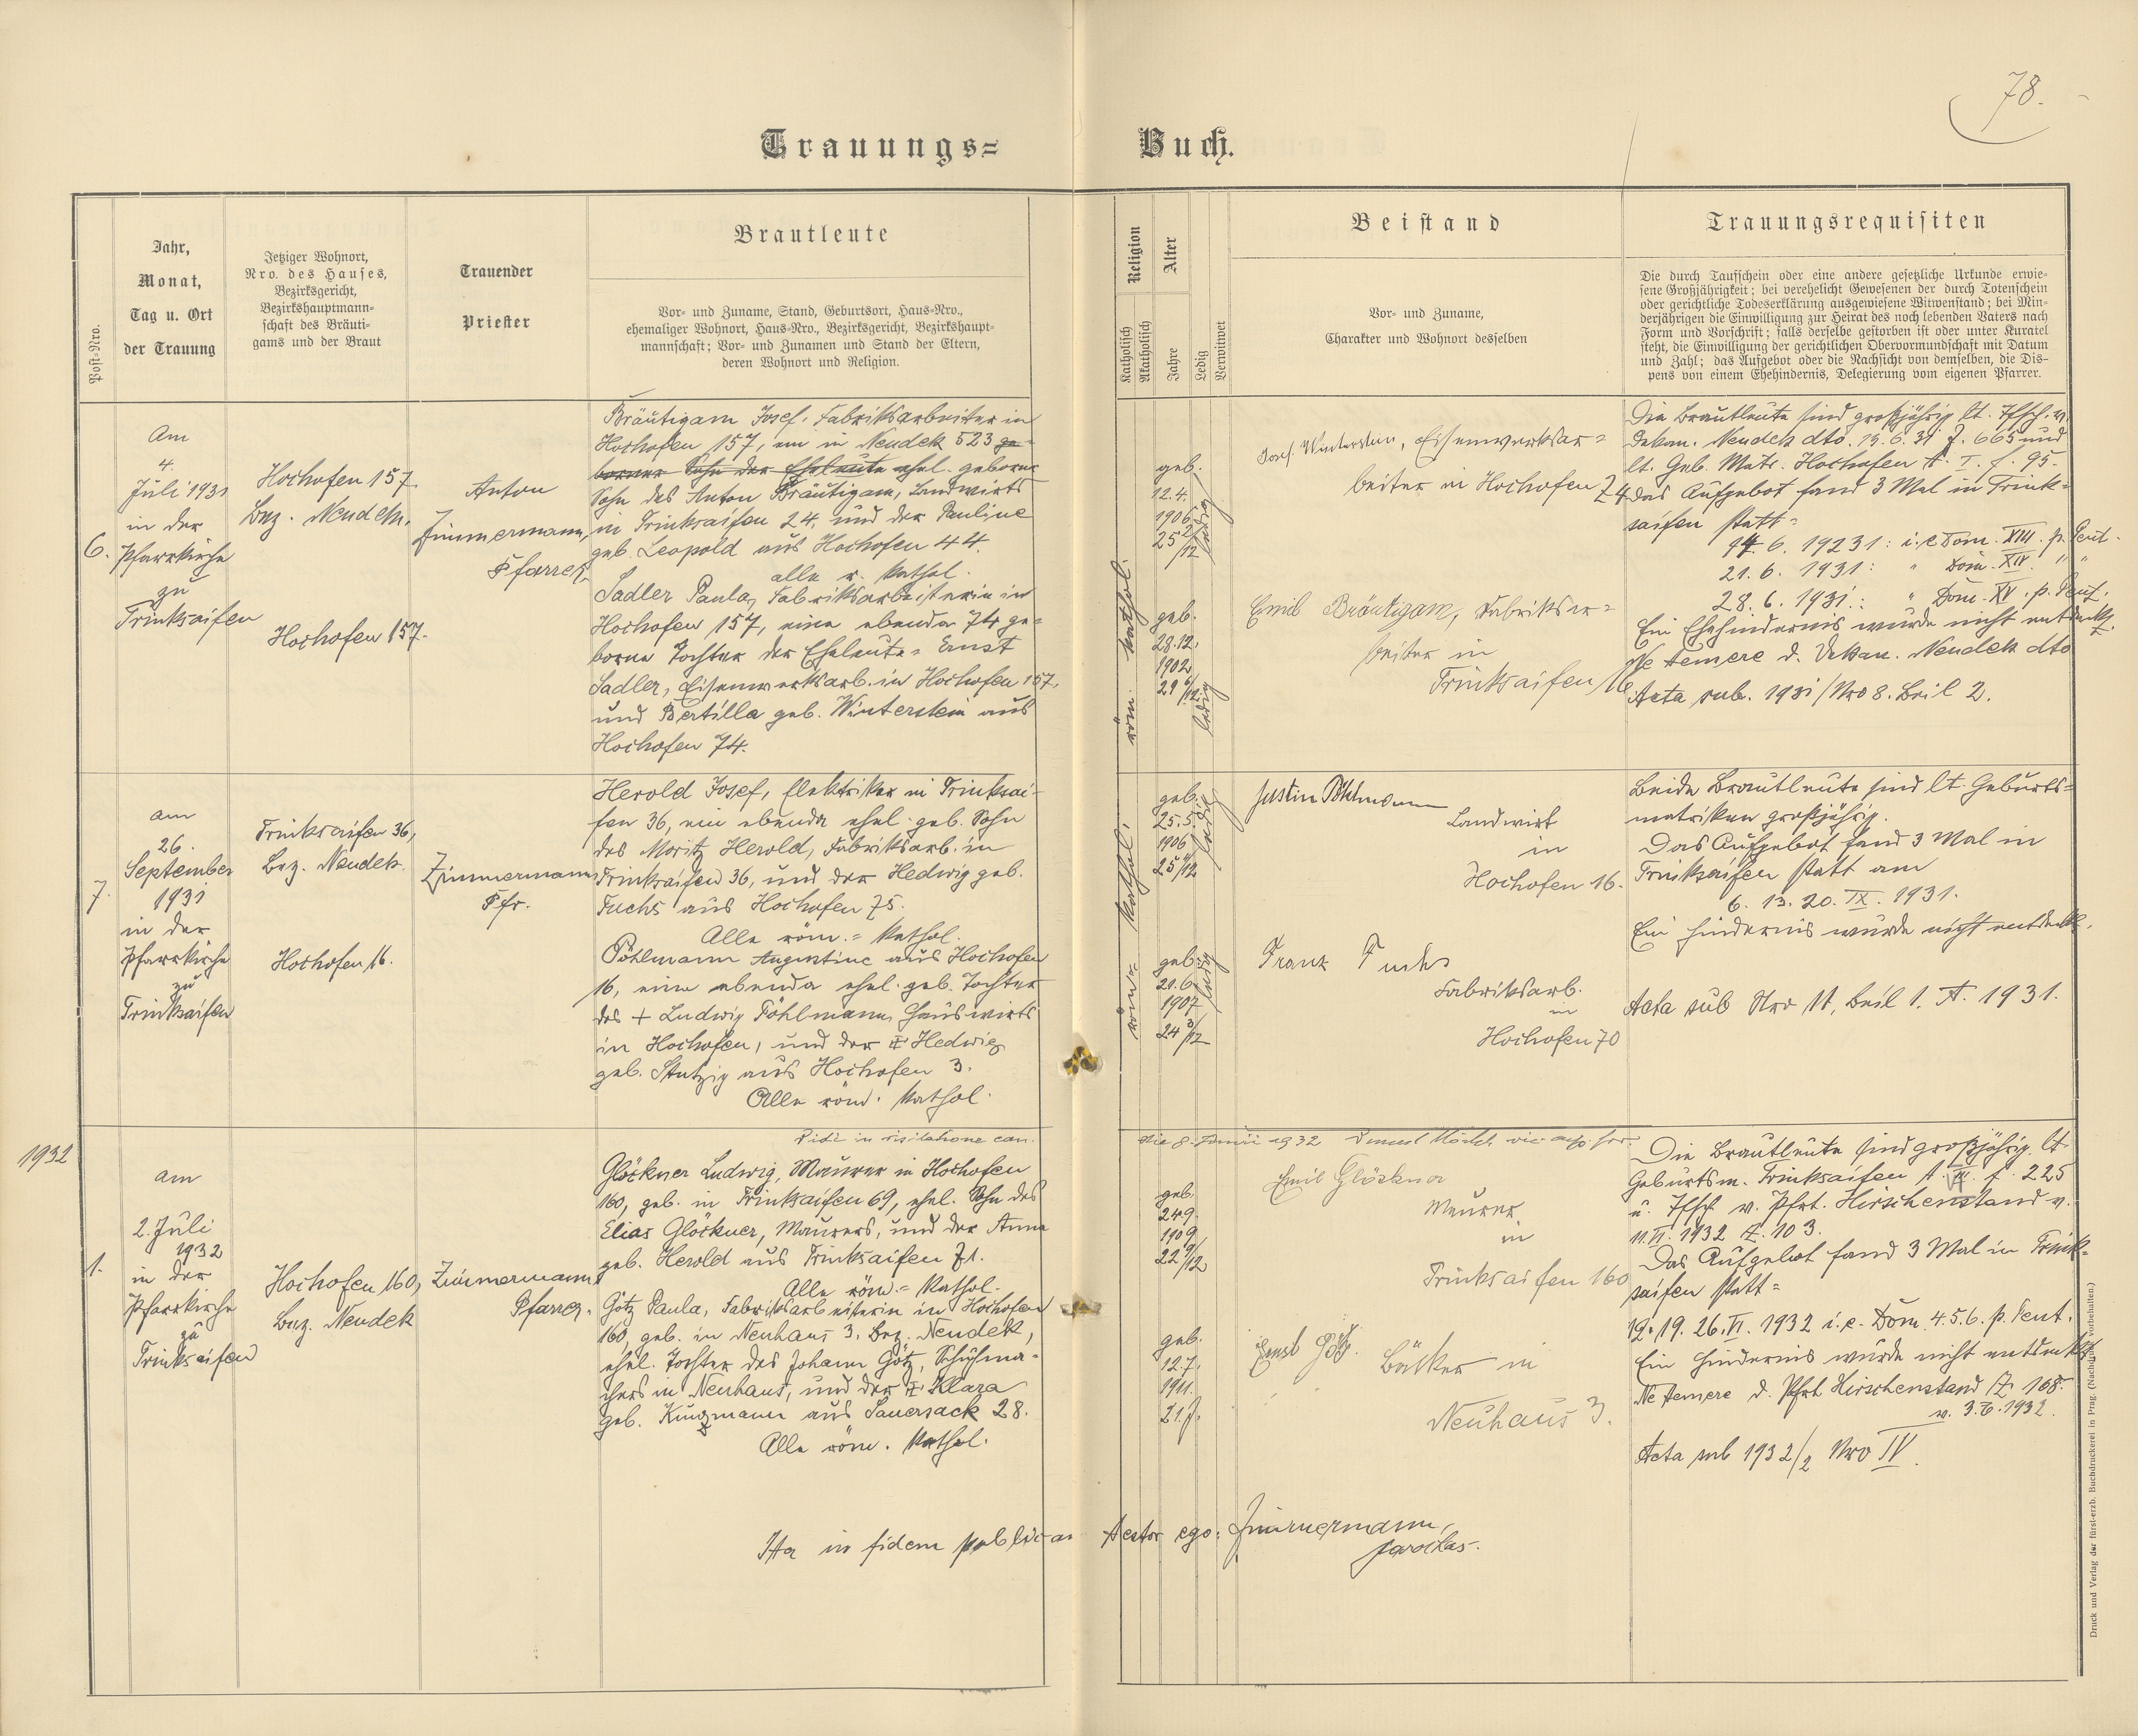 78.
Trauungs=Buch.
Post-Nro.
Jahr,
Monat,
Tag u. Ort
der Trauung
Jetziger Wohnort,
Nro. des Hauses,
Bezirksgericht,
Bezirkshauptmann-
schaft des Bräuti-
gams und der Braut
Trauender
Priester
Brautleute
Vor- und Zuname, Stand, Geburtsort, Haus-Nro.,
ehemaliger Wohnort, Haus-Nro., Bezirksgericht, Bezirkshaupt-
mannschaft; Vor- und Zunamen und Stand der Eltern,
deren Wohnort und Religion.
Religion
Katholisch
Akatholisch
Alter
Jahre
Ledig
Verwitwet
Beistand
Vor- und Zuname,
Charakter und Wohnort desselben
Trauungsrequisiten
Die durch Taufschein oder eine andere gesetzliche Urkunde erwie-
sene Großjährigkeit; bei verehelicht Gewesenen der durch Totenschein
oder gerichtliche Todeserklärung ausgewiesene Witwenstand; bei Min-
derjährigen die Einwilligung zur Heirat des noch lebenden Vaters nach
Form und Vorschrift; falls derselbe gestorben ist oder unter Kuratel
steht, die Einwilligung der gerichtlichen Obervormundschaft mit Datum
und Zahl; das Aufgebot oder die Nachsicht von demselben, die Dis-
pens von einem Ehehindernis, Delegierung vom eigenen Pfarrer.
6.
Am
4.
Juli 1931
in der
Pfarrkirche
zu
Trinksaifen
Hochofen 157
Bez. Neudek.
Hochofen 157.
Anton
Zimmermann,
Pfarrer
Bräutigam Josef, Fabriksarbeiter in
Hochofen 157, ein in Neudek 523 ge-
borner Sohn der Eheleute ehel. geborner
Sohn des Anton Bräutigam, Landwirts
in Trinksaifen 24, und der Pauline
geb. Leopold aus Hochofen 44.
alle r. kathol.
Sadler Paula, Fabriksarbeiterin in
Hochofen 157, eine ebenda 74 ge-
borne Tochter der Eheleute = Ernst
Sadler, Eisenwerksarb. in Hochofen 157,
und Bertilla geb. Winterstein aus
Hochofen 74.
röm. kathol.
geb.
12.4.
1906
25 2/12
ledig
geb.
28.12.
1902
29 6/12
ledig
Josef Winterstein, Eisenwerksar=
beiter in Hochofen 74
Emil Bräutigam, Fabriksar=
beiter in
Trinksaifen
Die Brautleute sind großjährig lt. Tfsch. v.
Dekan. Neudek dto. 19.6.31 Z. 665 und
lt. Geb. Matr. Hochofen A. I. f. 95.
Das Aufgebot fand 3 Mal in Trink-
saifen statt =
14. 6. 1931: i. e. Dom. XIII. p. Pent.
21. 6. 1931: " Dom. XIV. " "
28. 6. 1931: " Dom. XV. p. Pent.
Ein Ehehindernis wurde nicht entdeckt.
Ne temere d. Dekan. Neudek dto
Acta sub. 1931/Nro 8. Beil 2.
7.
am
26.
September
1931
in der
Pfarrkirche
zu
Trinksaifen
Trinksaifen 36,
Bez. Neudek.
Hochofen 16.
Zimmermann
Pfr.
Herold Josef, Elektriker in Trinksai-
fen 36, ein ebenda ehel. geb. Sohn
des Moritz Herold, Fabriksarb. in
Trinksaifen 36, und der Hedwig geb.
Fuchs aus Hochofen 75.
Alle röm.= kathol.
Pöhlmann Augustine aus Hochofen
16, eine ebenda ehel. geb. Tochter
des + Ludwig Pöhlmann, Hauswirts
in Hochofen, und der Hedwig
geb. Stutzig aus Hochofen 3.
Alle röm. kathol.
röm.= kathol.
geb.
25.5.
1906
25 4/12
ledig
geb.
21.6.
1907
24 3/12
ledig
Justin Pöhlmann
Landwirt
in
Hochofen 16.
Franz Fuchs
Fabriksarb.
in
Hochofen 70
Beide Brautleute sind lt. Geburts=
matriken großjährig.
Das Aufgebot fand 3 Mal in
Trinksaifen statt am
6. 13. 20. IX. 1931.
Ein Hindernis wurde nicht entdeckt.
Acta sub Nro 11, Beil 1. A. 1931.
Vidi in visitatione can. die 8. Junii 1932
1932
1.
am
2. Juli
1932
in der
Pfarrkirche
zu
Trinksaifen
Hochofen 160,
Bez. Neudek
Zimmermann,
Pfarrer.
Glöckner Ludwig, Maurer in Hochofen
160, geb. in Trinksaifen 69, ehel. Sohn des
Elias Glöckner, Maurers, und der Anna
geb. Herold aus Trinksaifen 71.
Alle röm.= kathol.
Götz Paula, Fabriksarbeiterin in Hochofen
160, geb. in Neuhaus 3. Bez. Neudek,
ehel. Tochter des Johann Götz, Schuhma-
chers in Neuhaus, und der Klara
geb. Kunzmann aus Sauersack 28.
Alle röm. kathol.
geb.
24.9.
1909
22 9/12
geb.
12.7.
1911.
21 J.
Emil Glöckner
Maurer
in
Trinksaifen 160
Ernst Götz.
Bäcker in
Neuhaus 3.
Die Brautleute sind großjährig lt.
Geburtsm. Trinksaifen f. 225
u. Tfsch. v. Pfrt. Hirschenstand v.
11.VI. 1932 Z. 103.
Das Aufgebot fand 3 Mal in Trink=
saifen statt =
12. 19. 26. VI. 1932 i. e. Dom. 4. 5. 6. p. Pent.
Ein Hindernis wurde nicht entdeckt.
Ne temere d. Pfrt. Hirschenstand Z. 168.
v. 3.7.1932.
Acta sub 1932/2 Nro IV.
Ita in fidem publicam testor ego: Zimmermann,
parochus.
Druck und Verlag der fürst-erzb. Buchdruckerei in Prag. (Nachdruck vorbehalten.)